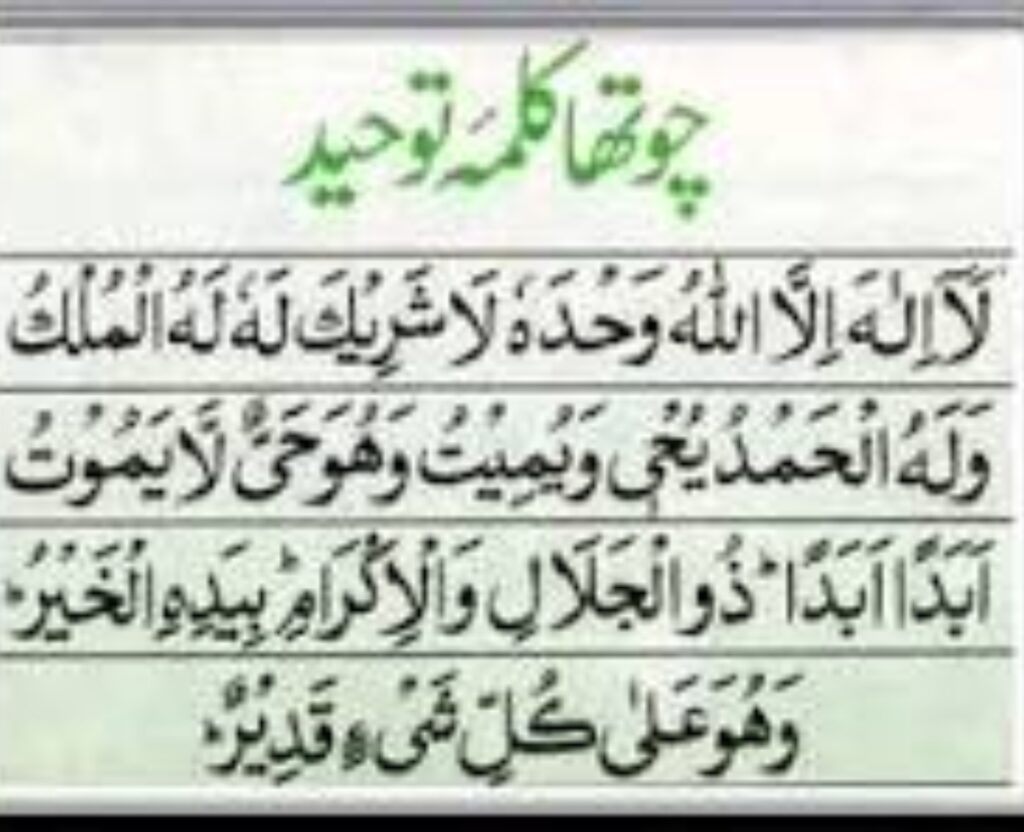 چوتھا کلمہ توحید
لَآ اِلٰهَ اِلَّا اللّٰهُ وَحْدَهٗ لَا شَرِيْكَ لَهٗ لَهُ الْمُلْكُ
وَلَهُ الْحَمْدُ يُحْيٖ وَيُمِيْتُ وَهُوَ حَيٌّ لَّا يَمُوْتُ
اَبَدًا اَبَدًا ؕ ذُو الْجَلَالِ وَالْاِكْرَامِ ؕ بِيَدِهِ الْخَيْرُ ؕ
وَهُوَ عَلٰى كُلِّ شَىْءٍ قَدِيْرٌ ؕ